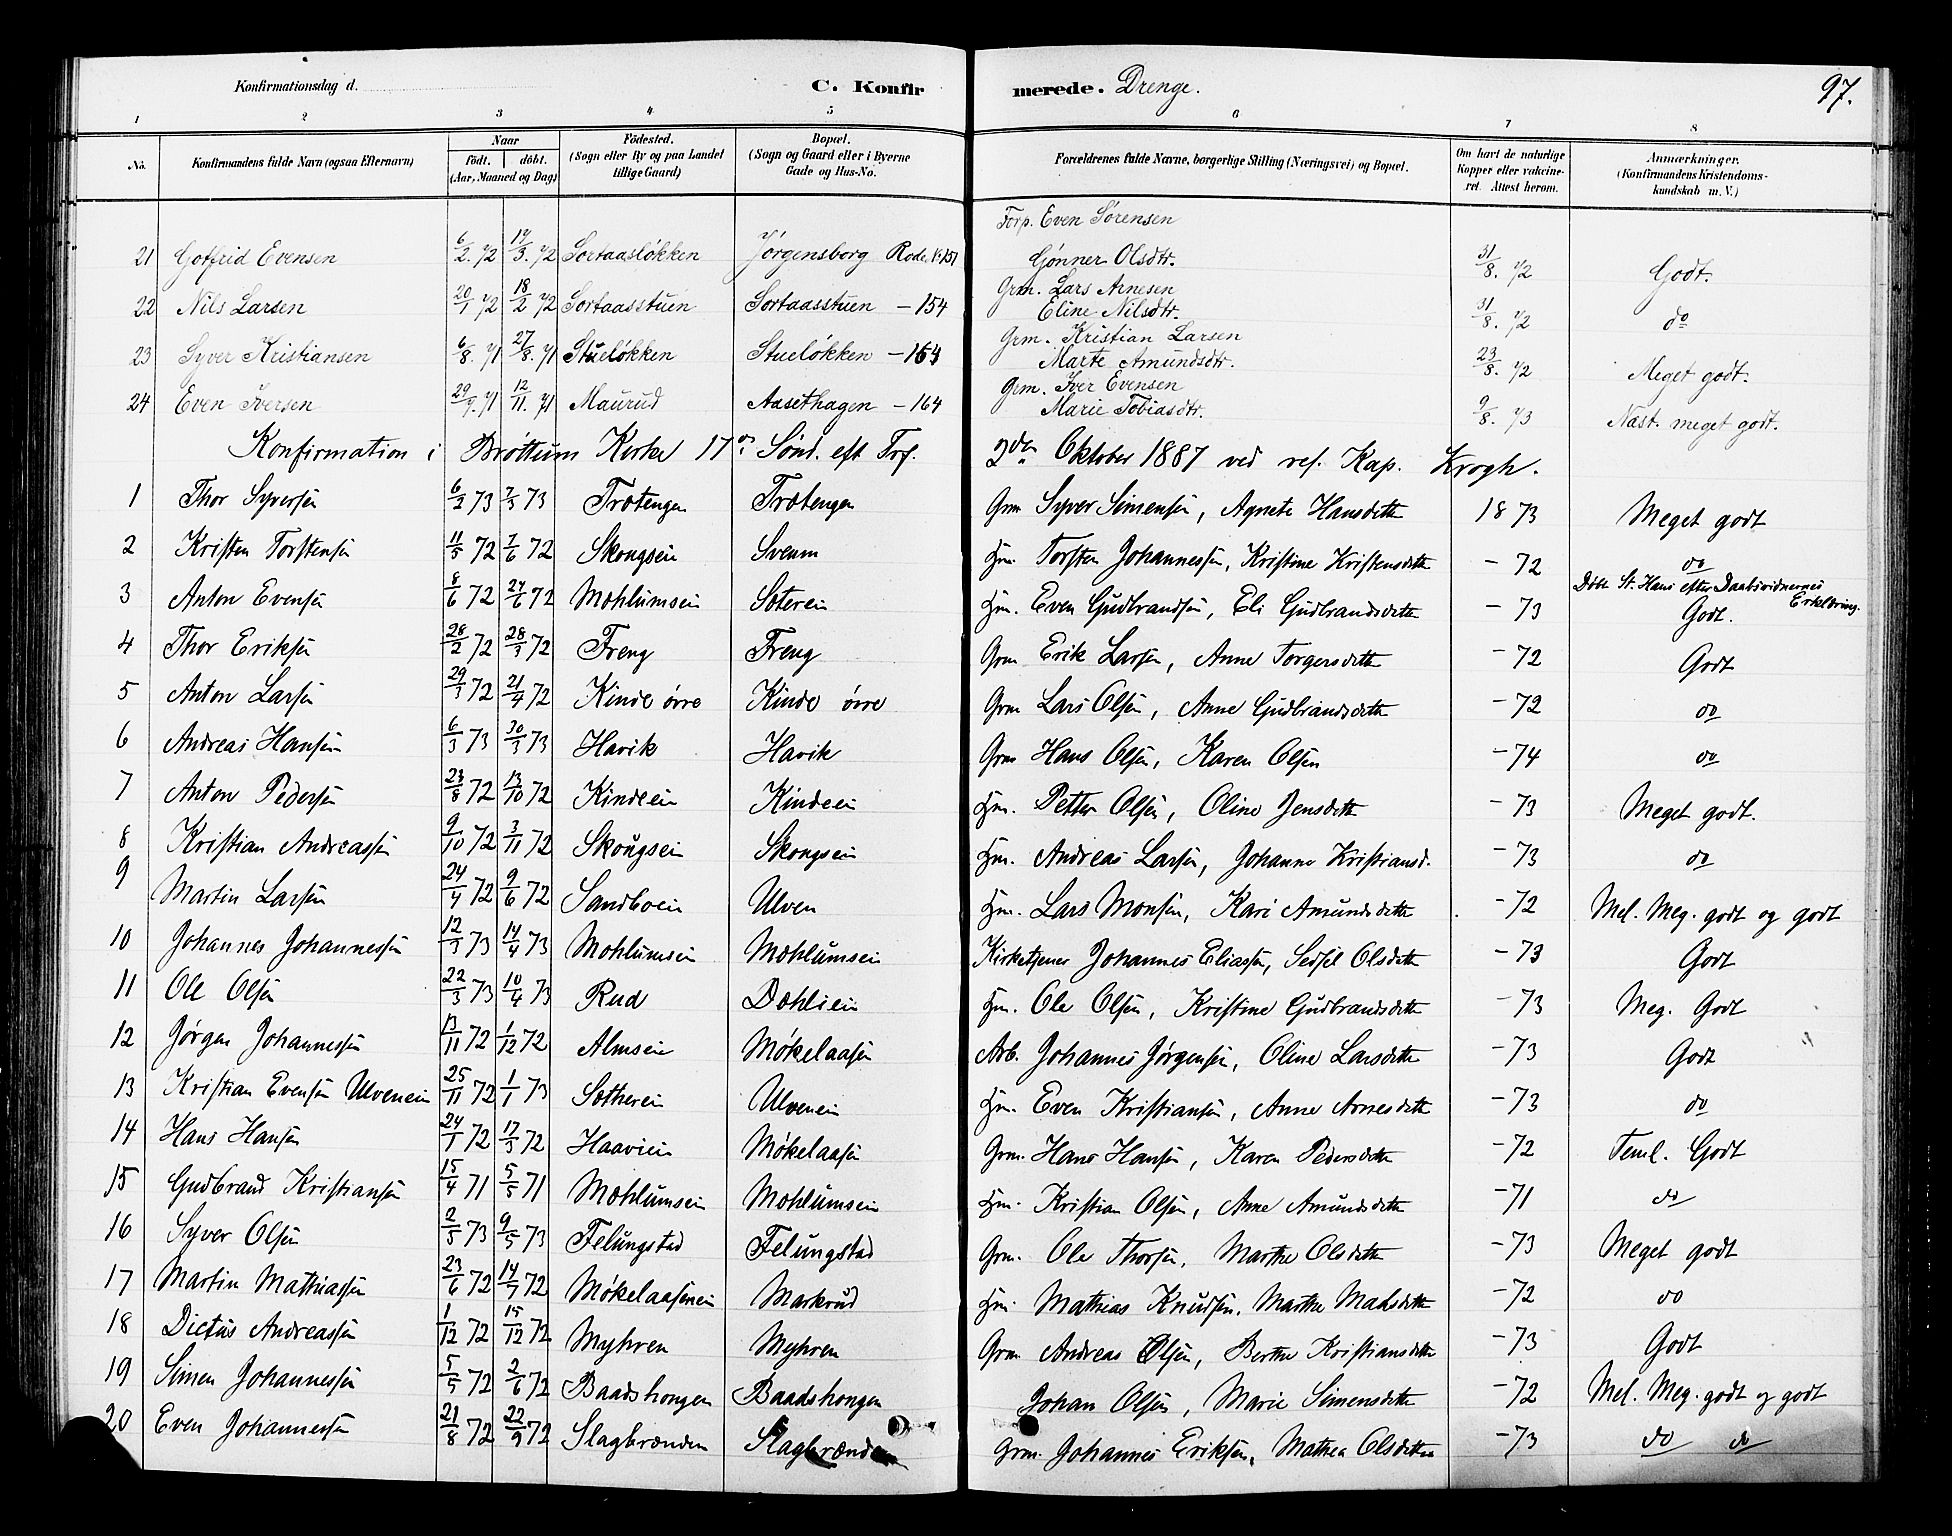 Konfirmationsdag d. C. Konfirmerede. Drenge. 97.
1 2 3 4 5 6 7 8
No. Konfirmandens fulde Navn (ogsaa Efternavn) Naar födt. döbt. (Aar, Maaned og Dag) Födested. (Sogn eller By og paa Landet tillige Gaard) Bopæl. (Sogn og Gaard eller i Byerne Gade og Hus-No. Forældrenes fulde Navne, borgerlige Stilling (Næringsvei) og Bopæl. Om havt de naturlige Kopper eller vakcineret. Attest herom. Anmærkninger. (Konfirmandens Kristendomskundskab m. V.)
21 Gotfrid Evensen 6/2. 72 17/3. 72 Sortaasløkken Jørgensborg Rode No 151 Forp. Even Sørensen Gønner Olsdtr. 31/8. 72 Godt.
22 Nils Larsen 20/1 72 18/2 72 Sortaasstuen Sortaasstuen - 154 Grm. Lars Arnesen Eline Nilsdtr. 31/8. 72 do
23 Syver Kristiansen 6/8. 71 27/8. 71 Stueløkken Stueløkken - 164 Grm. Kristian Larsen Marte Amundsdtr. 23/8. 72 Meget godt.
24 Even Iversen 29/9. 71 12/11. 71 Maurud Aasethagen - 164 Grm. Iver Evensen Marie Tobiasdtr. 9/8. 73 Næst. meget godt.
Konfirmation i Brøttum Kirke 17de Sønd. eft Tref. 2den Oktober 1887 ved res. Kap. Krogh.
1 Thor Syversen 6/2 73 7/3 73 Trætengen Trætengen Grm Syver Simensen, Agnete Hansdatter 1873 Meget godt
2 Kristen Torstensen 11/5 72 7/6 72 Skongseie Sveum Hm. Torsten Johannessen, Kristine Kristensdatter - 72 do
3 Anton Evensen 8/6 72 24/6 72 Mæhlumseie Sæterein Hm. Even Gudbrandsen, Eli Gudbrandsdatter - 73 Døbt St. Hans efter Daabsvidnernes Erklæring. Godt.
4 Thor Eriksen 28/2 72 28/3 72 Freng Freng Grm Erik Larsen, Anne Torgersdatter - 72 Godt
5 Anton Larsen 29/3 72 21/4 72 Kinde øvre Kinde øvre Grm Lars Olsen, Anne Gudbrandsdatter - 72 do
6 Andreas Hansen 6/3 73 30/3 73 Havik Havik Grm Hans Olsen, Karen Olsen - 74 do
7 Anton Pedersen 23/8 72 13/10 72 Kindeeie Kindeeie Hm. Petter Olsen, Oline Jensdatter - 73 Meget godt.
8 Kristian Andreassen 9/10 72 3/11 72 Skougseie Skongseie Hm. Andreas Larsen, Johanne Kristiansd. - 73 do
9 Martin Larsen 24/4 72 9/6 72 Sandboeie Ulven Hm. Lars Monsen, Kari Amundsdatter - 72 Mel. Meg. godt og godt
10 Johannes Johannessen 12/3 73 14/4 73 Mæhlumseie Mæhlumseie Kirketjener Johannes Eliassen, Sedsel Olsdatter - 73 Godt
11 Ole Olsen 22/3 73 10/4 73 Rud Dæhlieie Hm. Ole Olsen, Kristine Gudbrandsdatter - 73 Meg. Godt
12 Jørgen Johannessen 13/11 72 1/12 72 Almseie Møkelaasen Arb. Johannes Jørgensen, Oline Larsdatter - 73 Godt
13 Kristian Evensen Ulveneie 25/11 72 1/1 73 Sætherein Ulveneie Hm. Even Kristiansen, Anne Arnesdatter - 73 do
14 Hans Hansen 24/1 72 17/3 72 Haavieie Møkelaasen Grm. Hans Hansen, Karen Pedersdatter - 72 Teml. Godt
15 Gudbrand Kristiansen 15/4 71 5/5 71 Mæhlumseie Mæhlumseie Hm. Kristian Olsen, Anne Amundsdatter - 71 do
16 Syver Olsen 2/5 73 9/5 73 Felungstad Felungstad Grm. Ole Thorsen, Marthe Olsdatter - 73 Meget godt
17 Martin Mathiassen 23/6 72 14/7 72 Møkelaaseneie Markrud Hm. Mathias Knudsen, Marthe Matsdatter - 72 do
18 Dictus Andreassen 1/12 72 15/12 72 Myhren Myhren Grm Andreas Olsen, Berthe Kristiansdatter - 73 Godt
19 Simen Johannessen 5/5 72 2/6 72 Baadshongen Baadshongen Johan Olsen, Marie Simensdatter - 72 Mel. Meg. godt og godt
20 Even Johannessen 21/8 72 22/9 72 Slagbrænden Slagbrænden Grm. Johannes Eriksen, Mathea Olsdatter - 73 do do